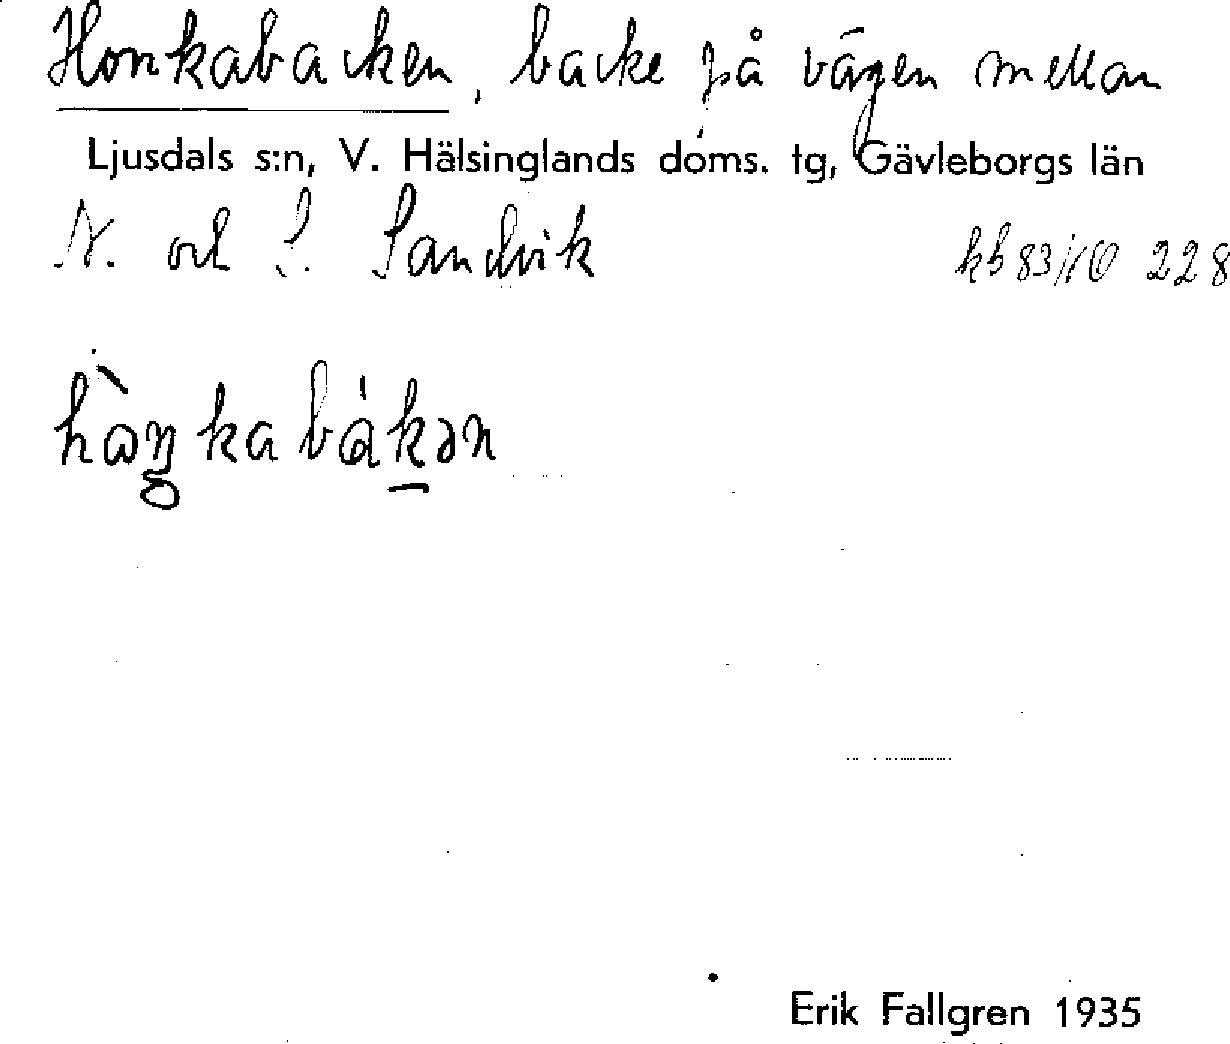 Honkabacken, backe på vägen mellan
Ljusdals s:n, V. Hälsinglands doms. tg, Gävleborgs län
N. och S. Sandvik
228
Erik Fallgren 1935